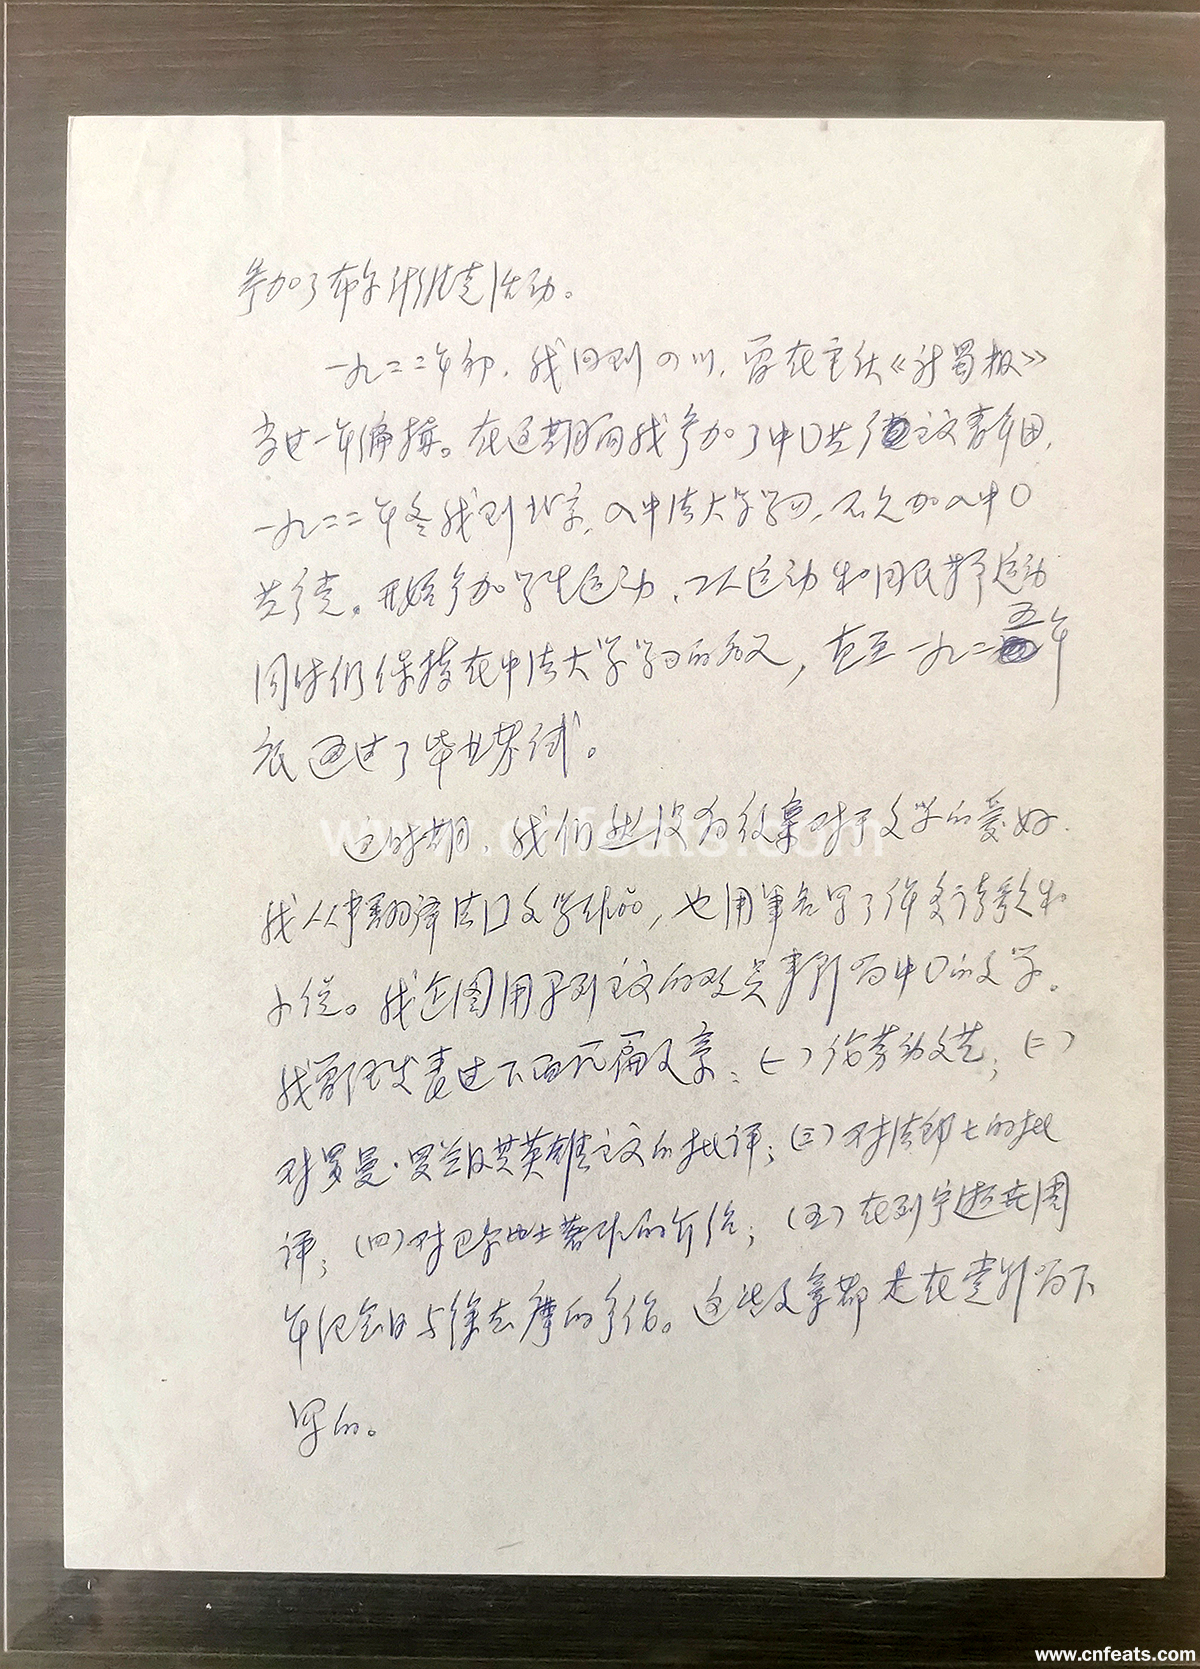 参加了布尔什维克活动。
一九二二年初，我回到四川，曾在重庆《新蜀报》
当过一年编辑。在这期间我参加了中国共产主义青年团，
一九二二年冬我到北京，入中法大学学习，不久加入中国
共产党。开始参加学生运动、工人运动和国民革命运动
同时仍保持在中法大学学习的名义，直至一九二五年
底通过了毕业考试。
这时期，我仍然没有放弃对于文学的爱好
我从事翻译法国文学作品，也用笔名写了许多诗歌和
小说。我企图用马列主义的观点来影响中国的文学。
我曾经发表过下面几篇文章：（一）论劳动文艺；（二）
对罗曼·罗兰及其英雄主义的批评；（三）对法郎士的批
评；（四）对巴尔比士著作的介绍；（五）在列宁逝世周
年纪念日与徐志摩的争论。这些文章都是在党影响下
写的。
www.cnfeats.com
www.cnfeats.com